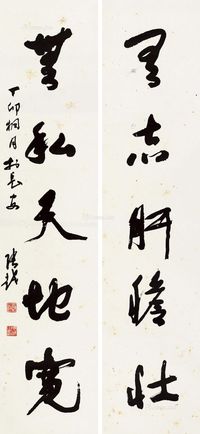 有志肝膽壯
無私天地寬
丁卯桐月於長安